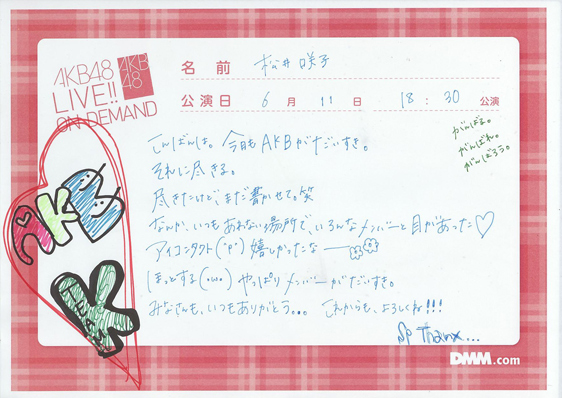 AKB48
LIVE!!
ON DEMAND
AKB
48
名前 松井咲子
公演日 6月11日 18:30 公演
がんばる。
がんばれ。
がんばろう。
こんばんは。今日もAKBがだいすき。
それに尽きる。
尽きたけど、まだ書かせて。笑
なんか、いつもあわない場所で、いろんなメンバーと目があった♡
アイコンタクト(°▽°)嬉しかったなー
ほっとする(・ω・)やっぱりメンバーがだいすき。
みなさんも、いつもありがとう。。。これからも、よろしくね!!!
Thanx...
AKB
K
TEAM
DMM.com